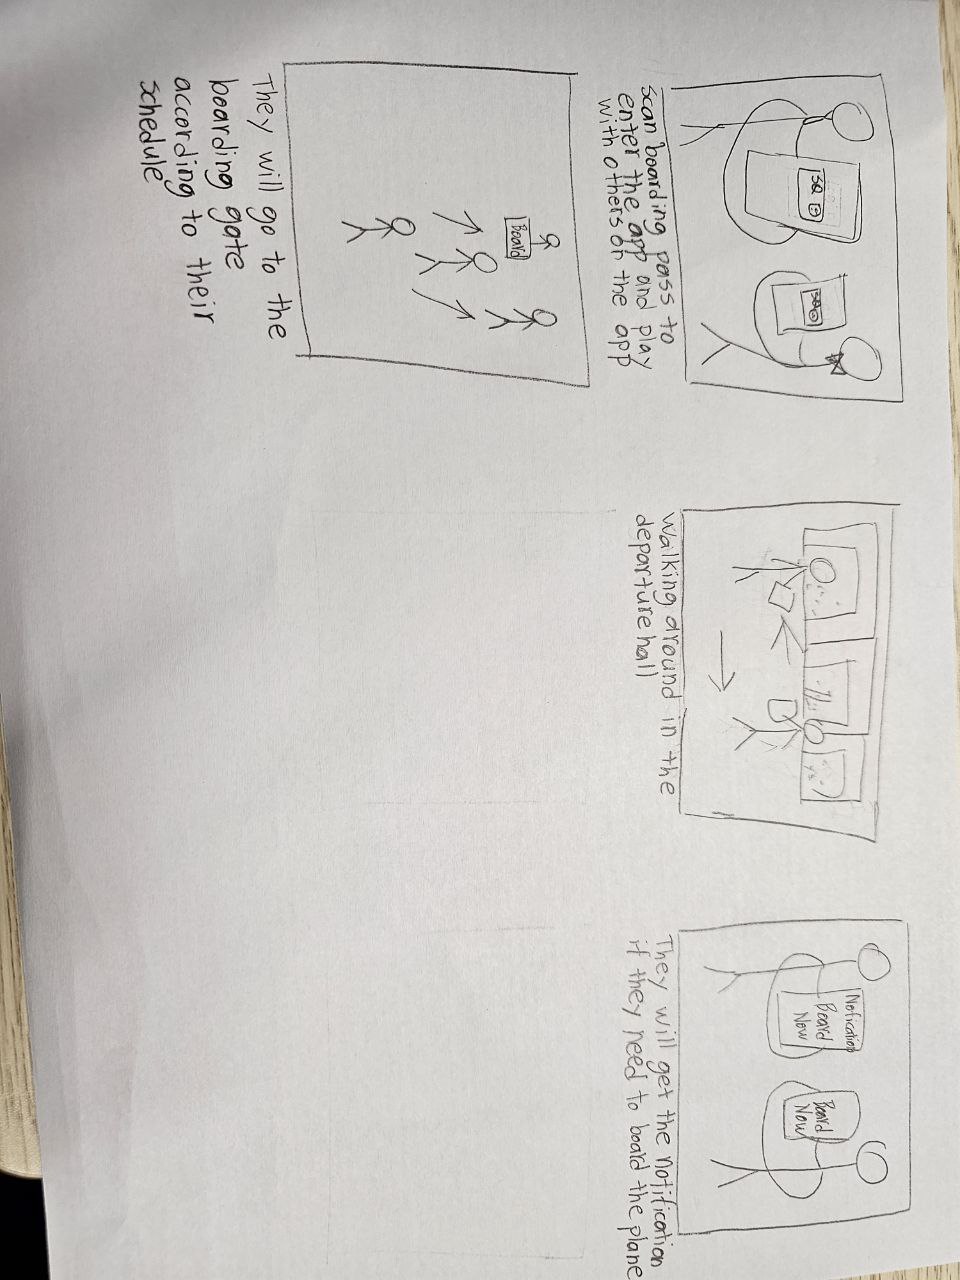 SQ
SQ
scan boarding pass to
enter the app and play
with others on the app
Walking around in the
departure hall
Notication
Board
Now
Board
Now
They will get the notification
if they need to board the plane
Board
They will go to the
boarding gate
according to their
schedule